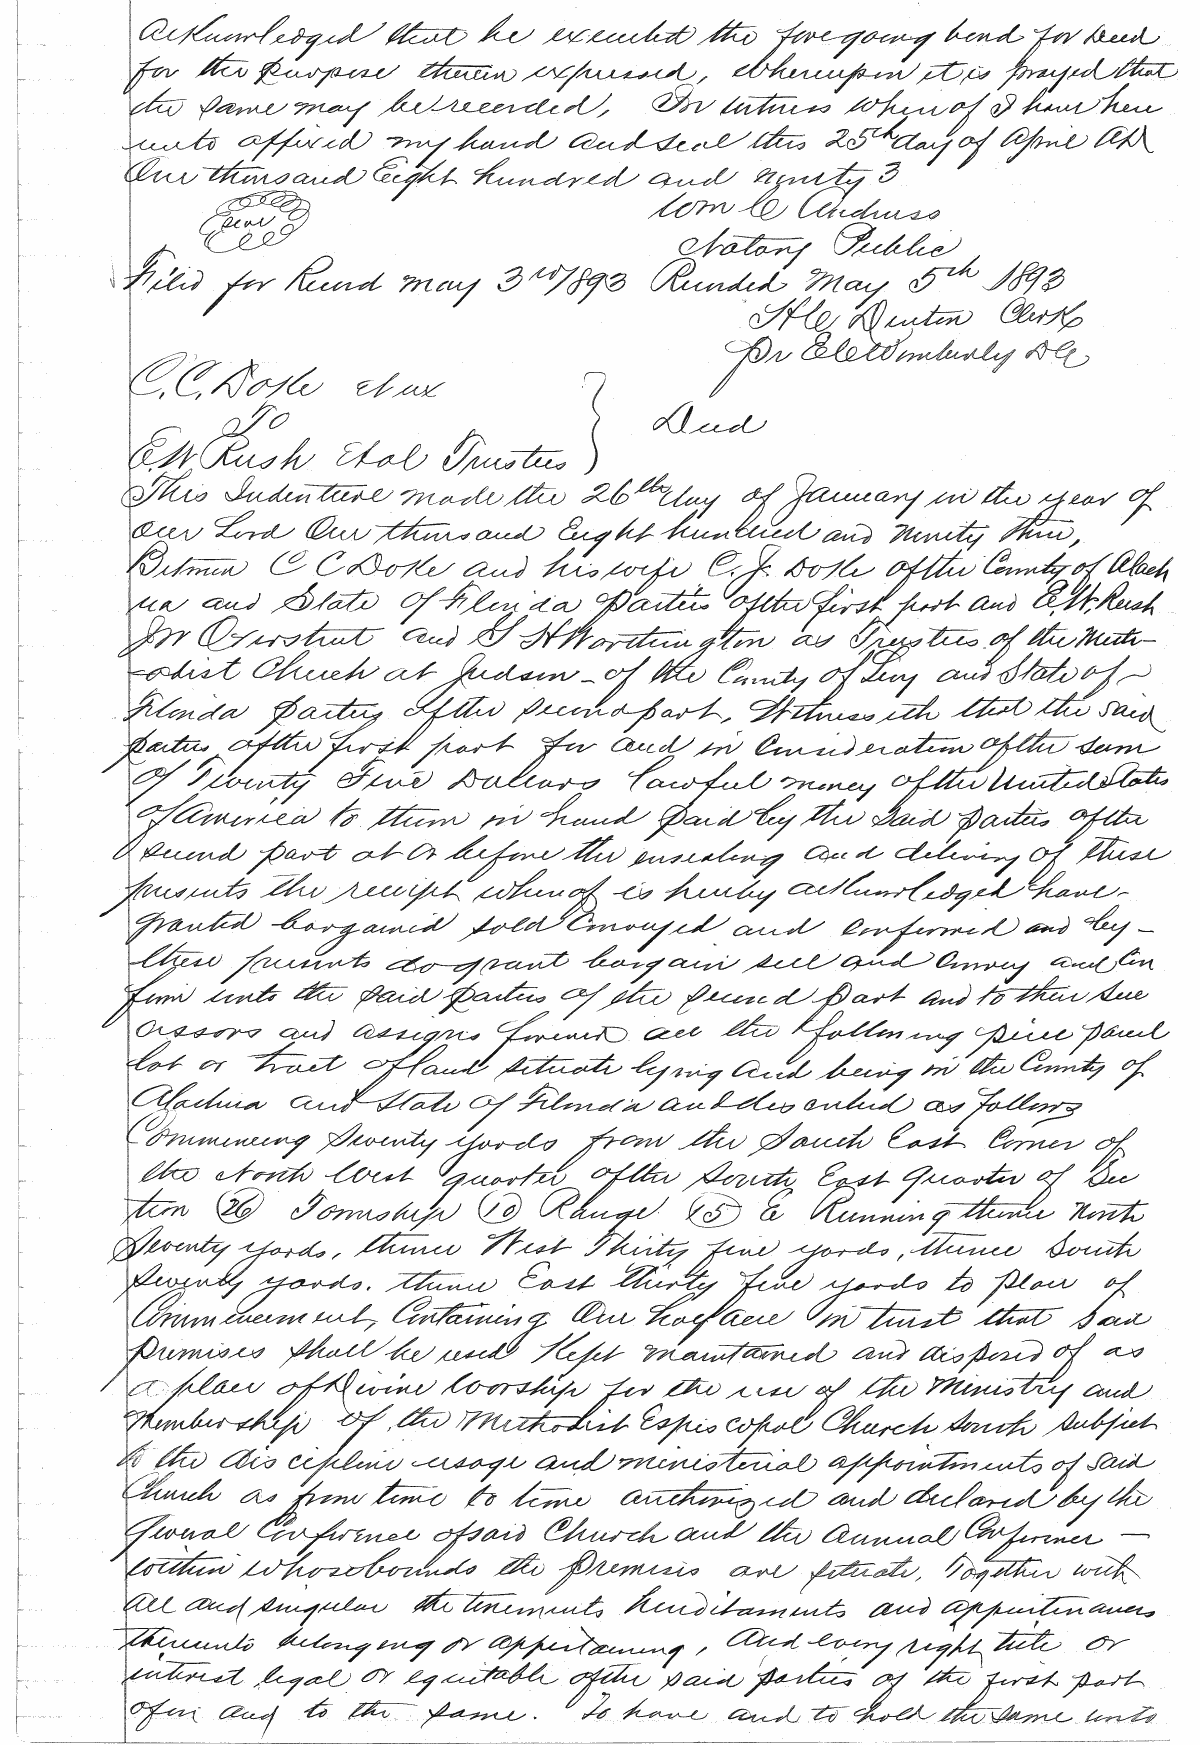 acknowledged that he executed the foregoing bond for Deed
for the purpose therein expressed, Whereupon it is prayed that
the same may be recorded, In witness whereof I have here
unto affixed my hand and seal this 25th day of April AD
One thousand Eight hundred and ninety 3
Seal
Wm C Andruss
Notary Public
Filed for Record May 3rd/1893 Recorded May 5th 1893
H C Denton Clerk
Pr E C Wimberly DC
C. C. Doke et ux
To
Deed
E. W. Rush Et al Trustees
This Indenture made the 26th day of January in the year of
our Lord One thousand Eight hundred and Ninety Three,
Between C C Doke and his wife C. J. Doke of the County of Alach
ua and State of Florida Parties of the first part and E. W. Rush
J W Overstreet and S H Worthington as Trustees of the Meth-
-odist Church at Judson - of the County of Levy and State of -
Florida Parties of the second part, Witnesseth that the said
parties of the first part for and in consideration of the sum
of Twenty Five Dollars lawful money of the United States
of America to them in hand paid by the said parties of the
second part at or before the ensealing and delivery of these
presents the receipt whereof is hereby acknowledged have -
granted bargained sold Conveyed and confirmed and by -
these presents do grant bargain sell and Convey and Con
firm unto the said parties of the second part and to their suc
cessors and assigns forever all the following piece parcel
lot or tract of land situate lying and being in the County of
Alachua and State of Florida and described as follows
Commencing Seventy yards from the South East Corner of
the North West quarter of the South East Quarter of Sec
tion 26 Township 10 Range 15 E Running thence North
Seventy yards, thence West Thirty five yards, thence South
Seventy yards. thence East thirty five yards to place of
Commencement, Containing One half acre in trust that said
premises shall be used Kept maintained and disposed of as
a place of Divine Worship for the use of the Ministry and
Membership of the Methodist Espiscopol Church South subject
to the discipline usage and ministerial appointments of said
Church as from time to time authorized and declared by the
General Conference of said Church and the Annual Conference -
within whose bounds the premisis are situate, Together with
all and singular the tenements hereditaments and appurtenances
thereunto belonging or appertaining, And every right title or
interest legal or equitable of the said parties of the first part
of in and to the same. To have and to hold the same unto